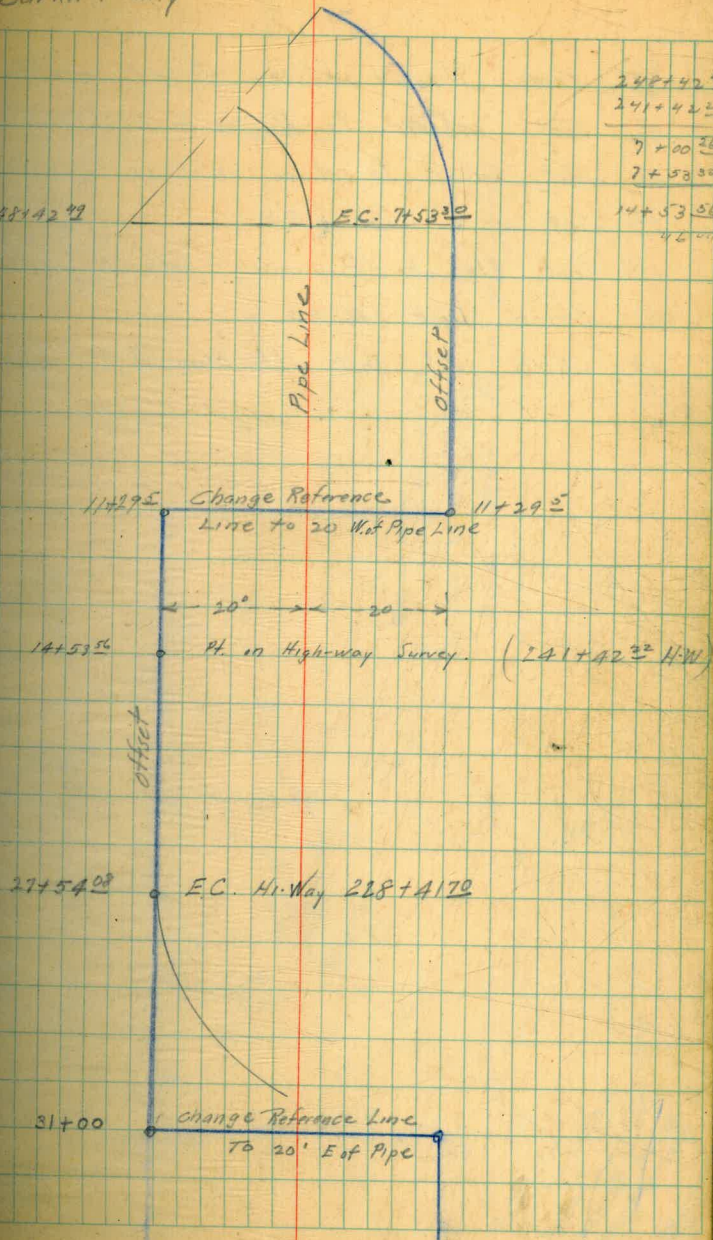 248+42
241+42 22
7+00 26
7+53 30
14+53 56
8+42 49
E.C. 7+53 30
Pipe Line
Offset
11+29 5
Change Reference
Line to 20 W. of Pipe Line
11+29 5
20'
20
14+53 56
Pt. on High-way Survey. (241+42 22 H-W)
Offset
27+54 08
E.C. Hi-Way 228+41 70
31+00
Change Reference Line
To 20' E of Pipe